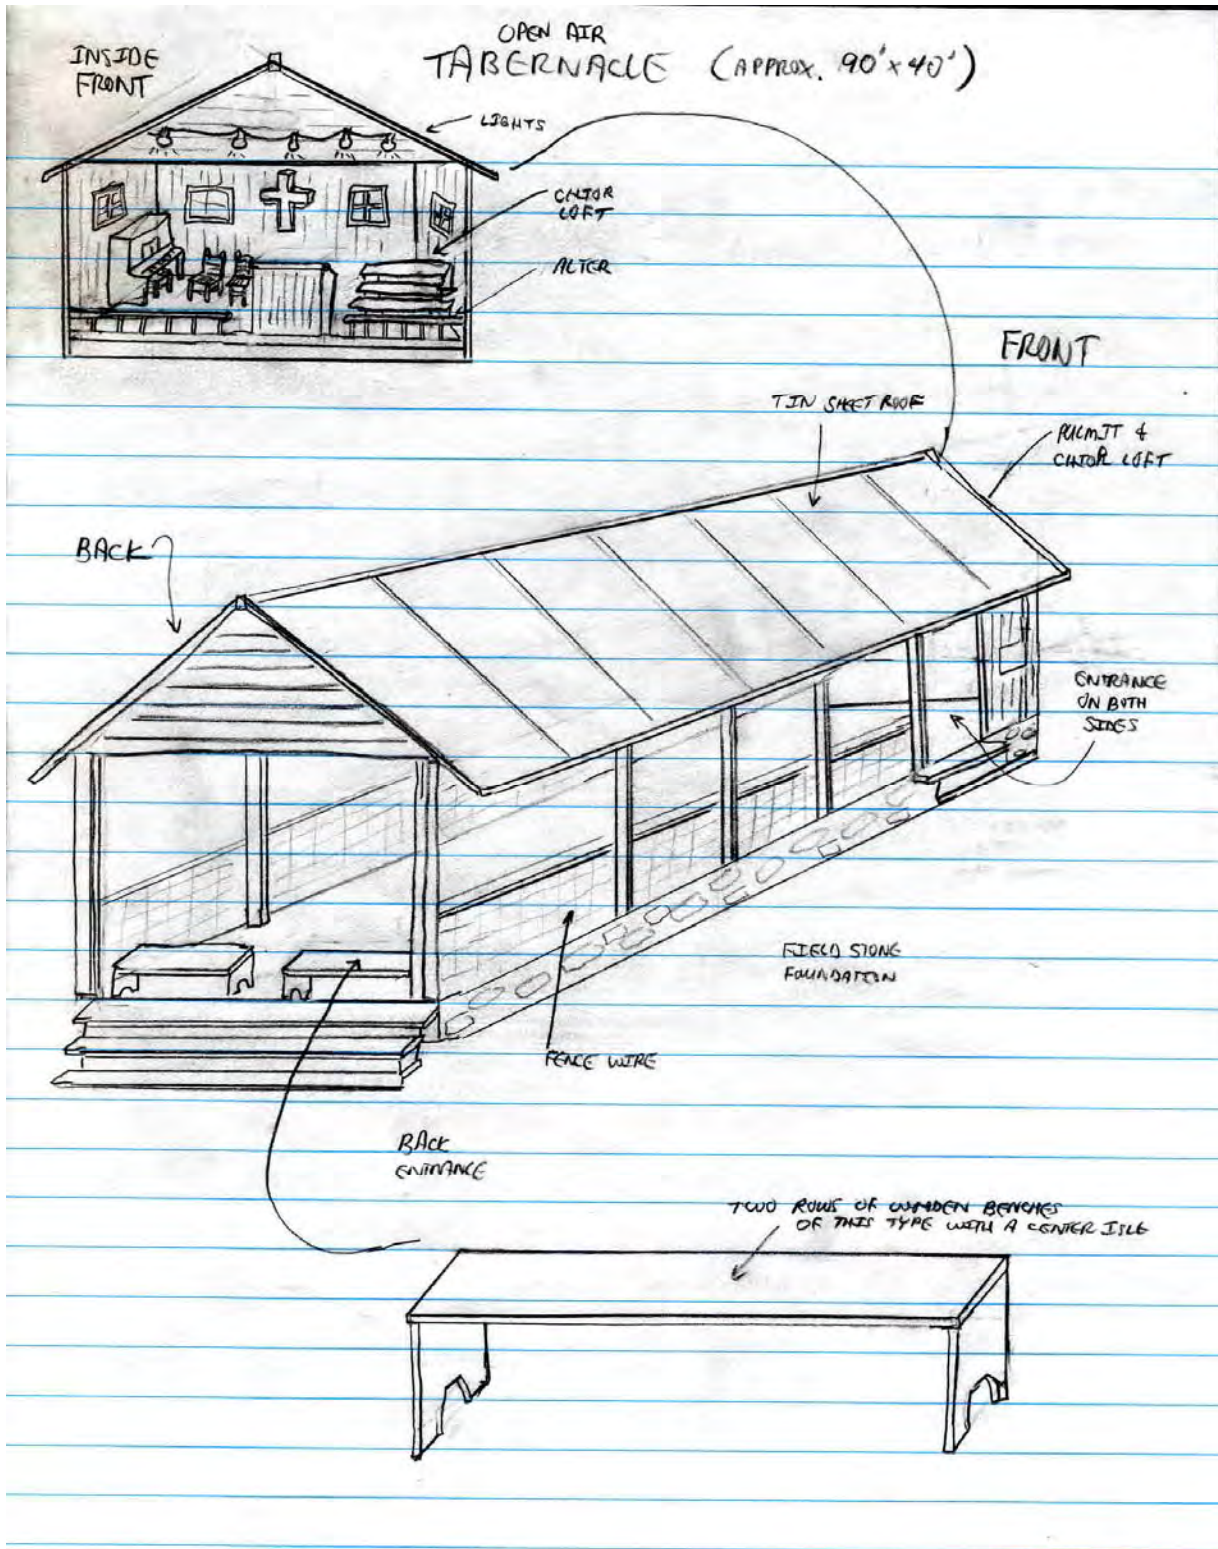 INSIDE
FRONT
OPEN AIR
TABERNACLE (APPROX. 90' x 40')
LIGHTS
CHIOR
LOFT
ALTER
FRONT
TIN SHEET ROOF
PULMIT &
CHIOR LOFT
BACK
ENTRANCE
ON BOTH
SIDES
FIELD STONE
FOUNDATION
FENCE WIRE
BACK
ENTRANCE
TWO ROWS OF WOODEN BENCHES
OF THIS TYPE WITH A CENTER ISLE